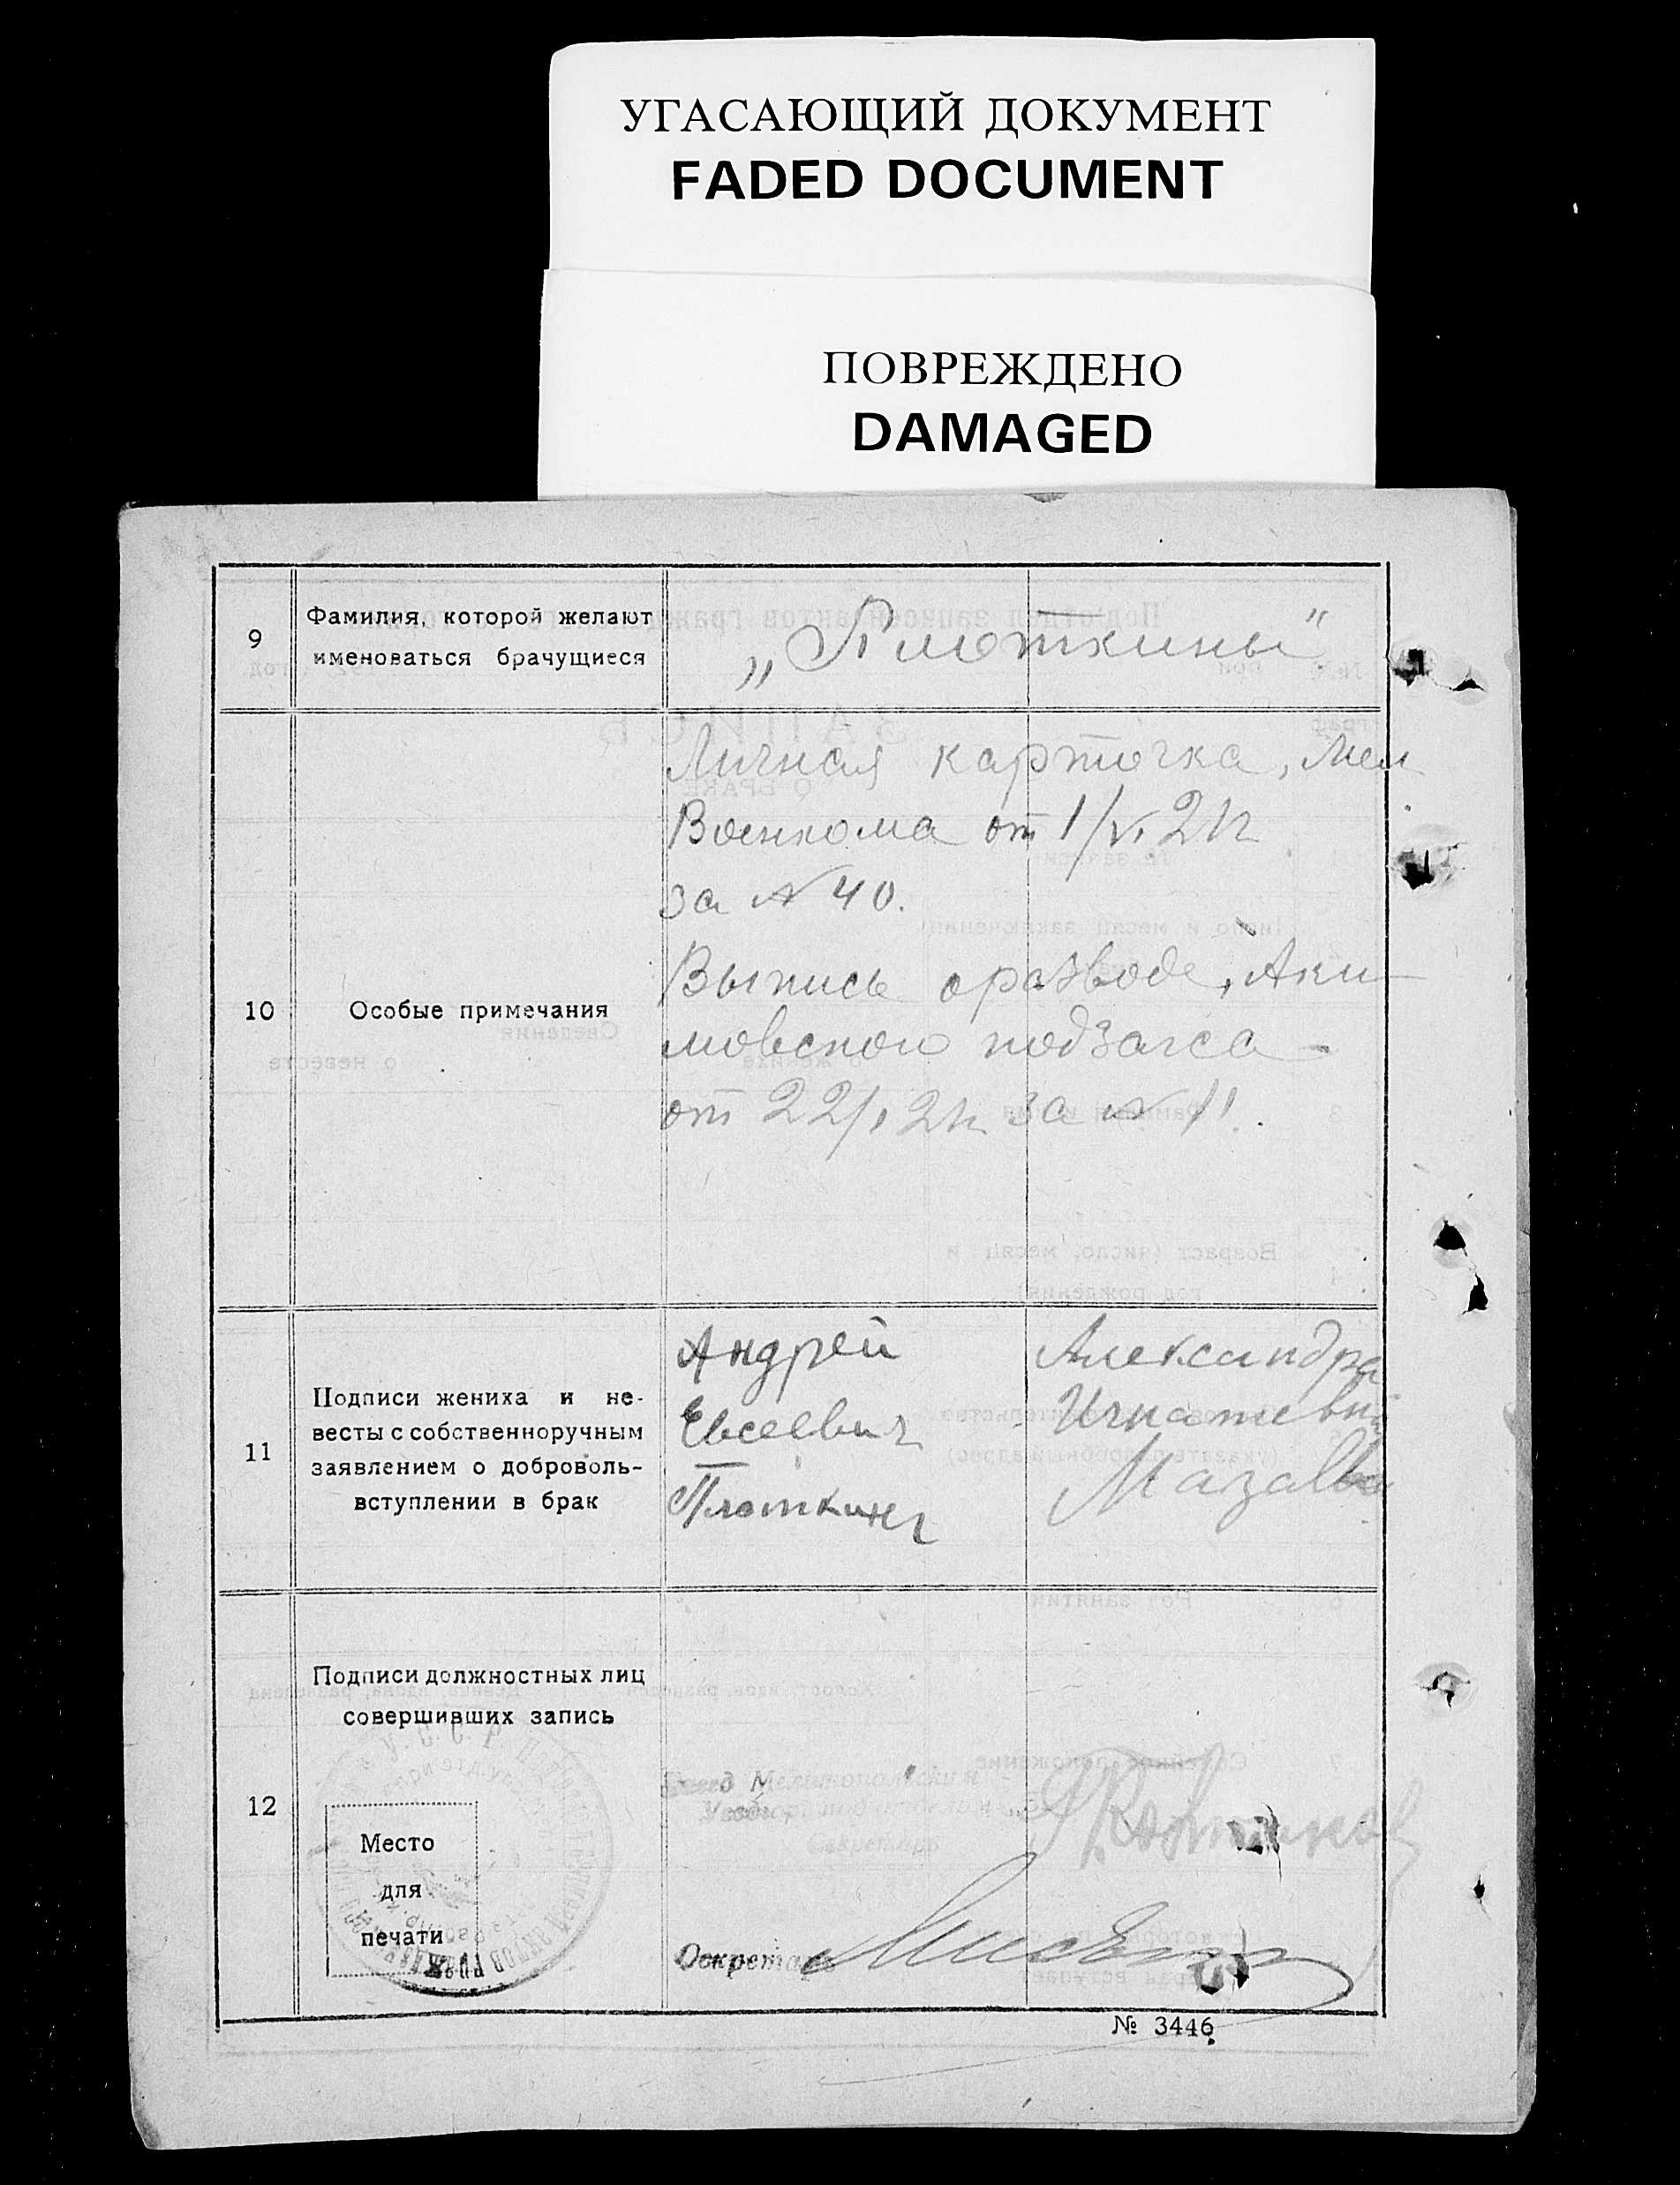 УГАСАЮЩИЙ ДОКУМЕНТ
FADED DOCUMENT
ПОВРЕЖДЕНО
DAMAGED
9
Фамилия, которой желают
именоваться брачущиеся
„Плоткины"
10
Особые примечания
Личная карточка, Мел
Военкома от 1/V 21г
за № 40.
Выпись о разводе, Аки-
мовского подзагса
от 22/ 21г за № 11.
11
Подписи жениха и не-
весты с собственноручным
заявлением о доброволь-
вступлении в брак
Андрей
Евсеевич
Плоткин
Александра
Игнатьевна
12
Подписи должностных лиц
совершивших запись
Место
для
печати
Секретарь
№ 3446